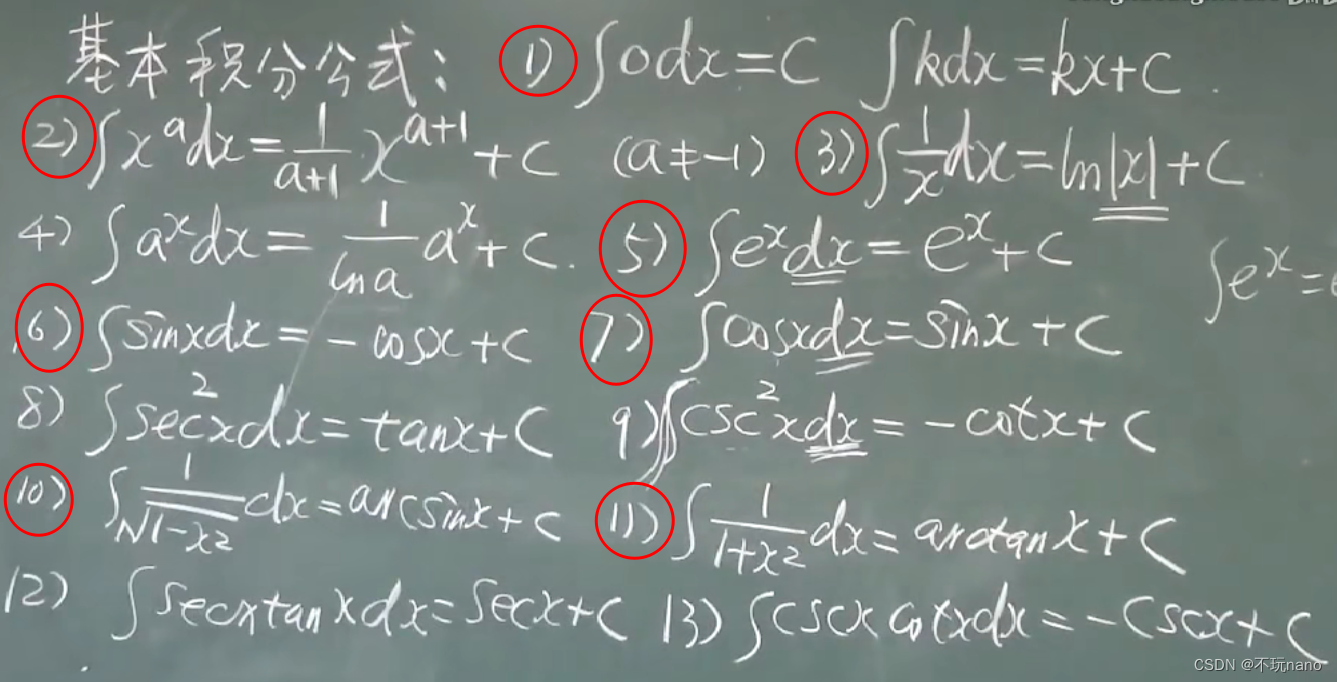 基本积分公式： 1) ∫0dx=C ∫kdx=kx+C.
2) ∫x^a dx=1/(a+1) x^(a+1)+C (a≠-1) 3) ∫1/x dx=ln|x|+C
4) ∫a^x dx=1/(ln a) a^x+C. 5) ∫e^x dx=e^x+C ∫e^x=
6) ∫sinxdx=-cosx+C 7) ∫cosxdx=sinx+C
8) ∫sec²xdx=tanx+C 9) ∫csc²xdx=-cotx+C
10) ∫1/√(1-x²) dx=arcsinx+C 11) ∫1/(1+x²) dx=arctanx+C
12) ∫secxtanxdx=secx+C 13) ∫cscxcotxdx=-cscx+C
CSDN @不玩nano